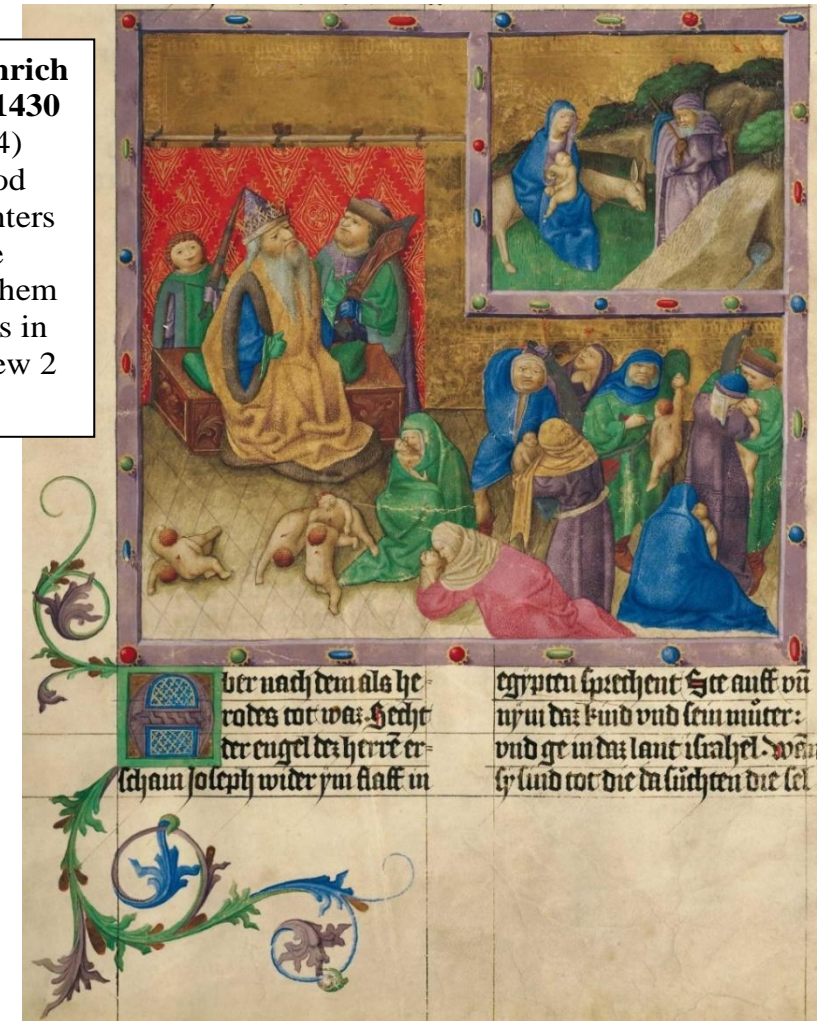 nrich
1430
4)
od
nters
e
hem
s in
ew 2
Aber nach dem als he-
rodes tot waz. Secht
der engel dez herrē er-
scham Joseph wider ym slaff in
egypten sprechent Ste auff vn̄
nym daz kind vnd sein můter:
vnd ge in daz lant israhel. wēn
sy sind tot die da sůchten die sel